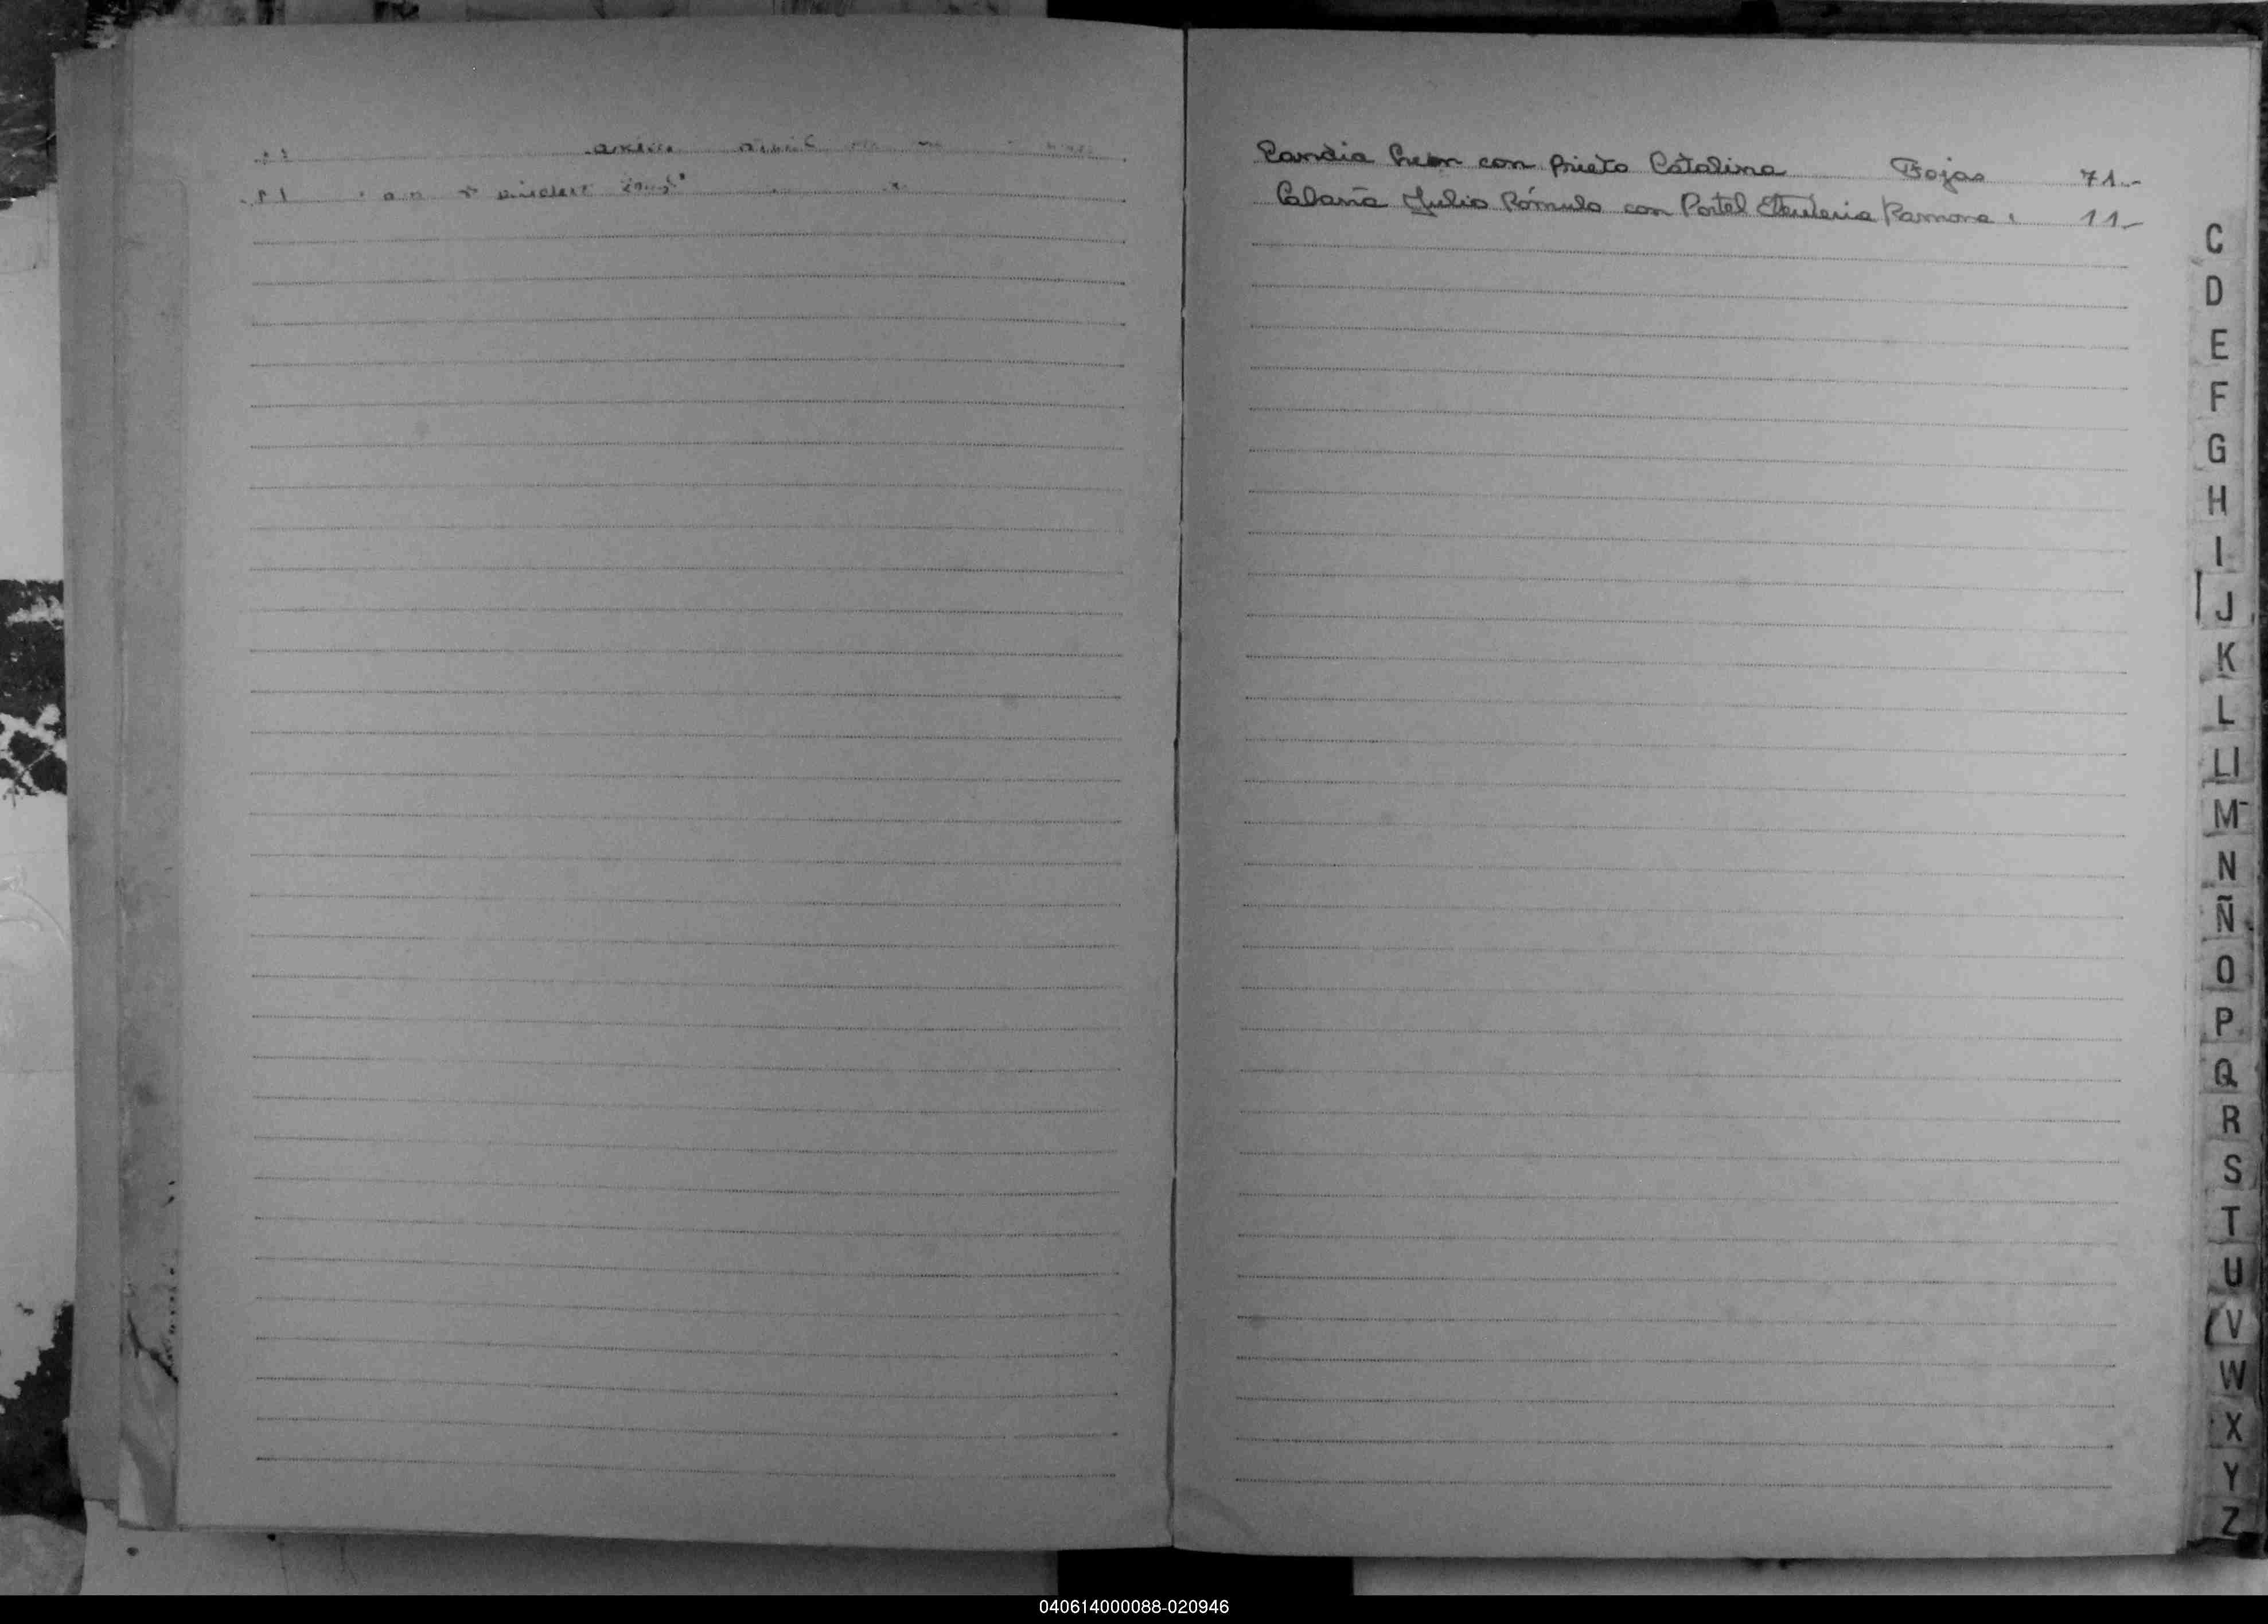 Candia Juan con Prieto Catalina Fojas 71.-
Cabaña Julio Rómulo con Portel Eleuteria Ramona " 11-
C
D
E
F
G
H
I
J
K
L
Ll
M
N
Ñ
O
P
Q
R
S
T
U
V
W
X
Y
Z
040614000088-020946